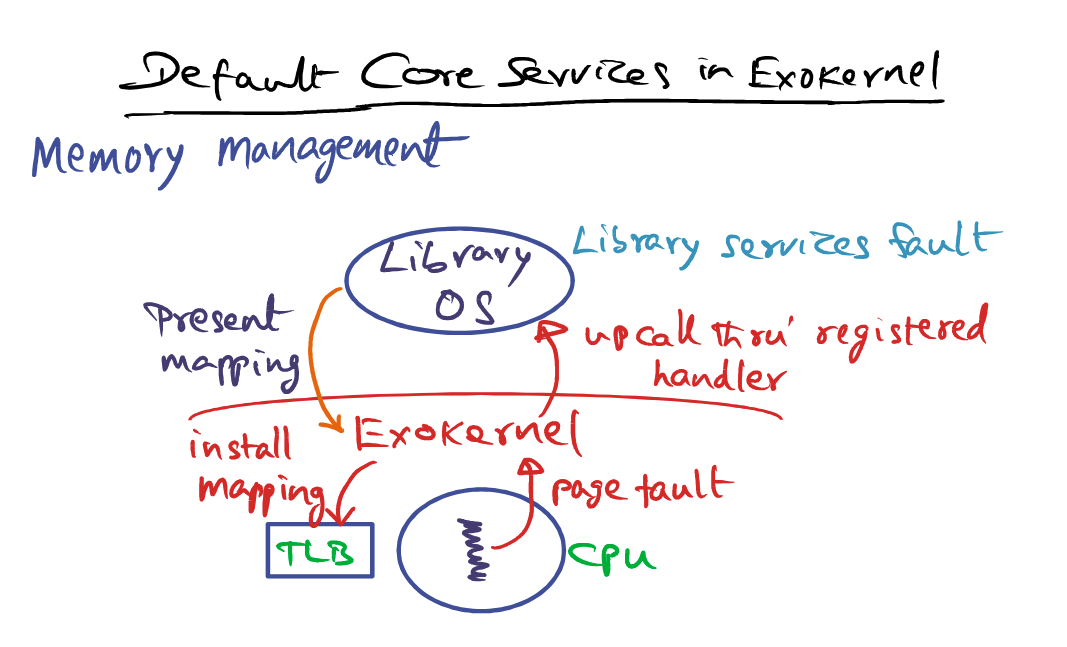 Default Core Services in Exokernel
Memory management
Library services fault
Library
OS
Present
mapping
upcall thru' registered
handler
Exokernel
install
mapping
page fault
TLB
CPU